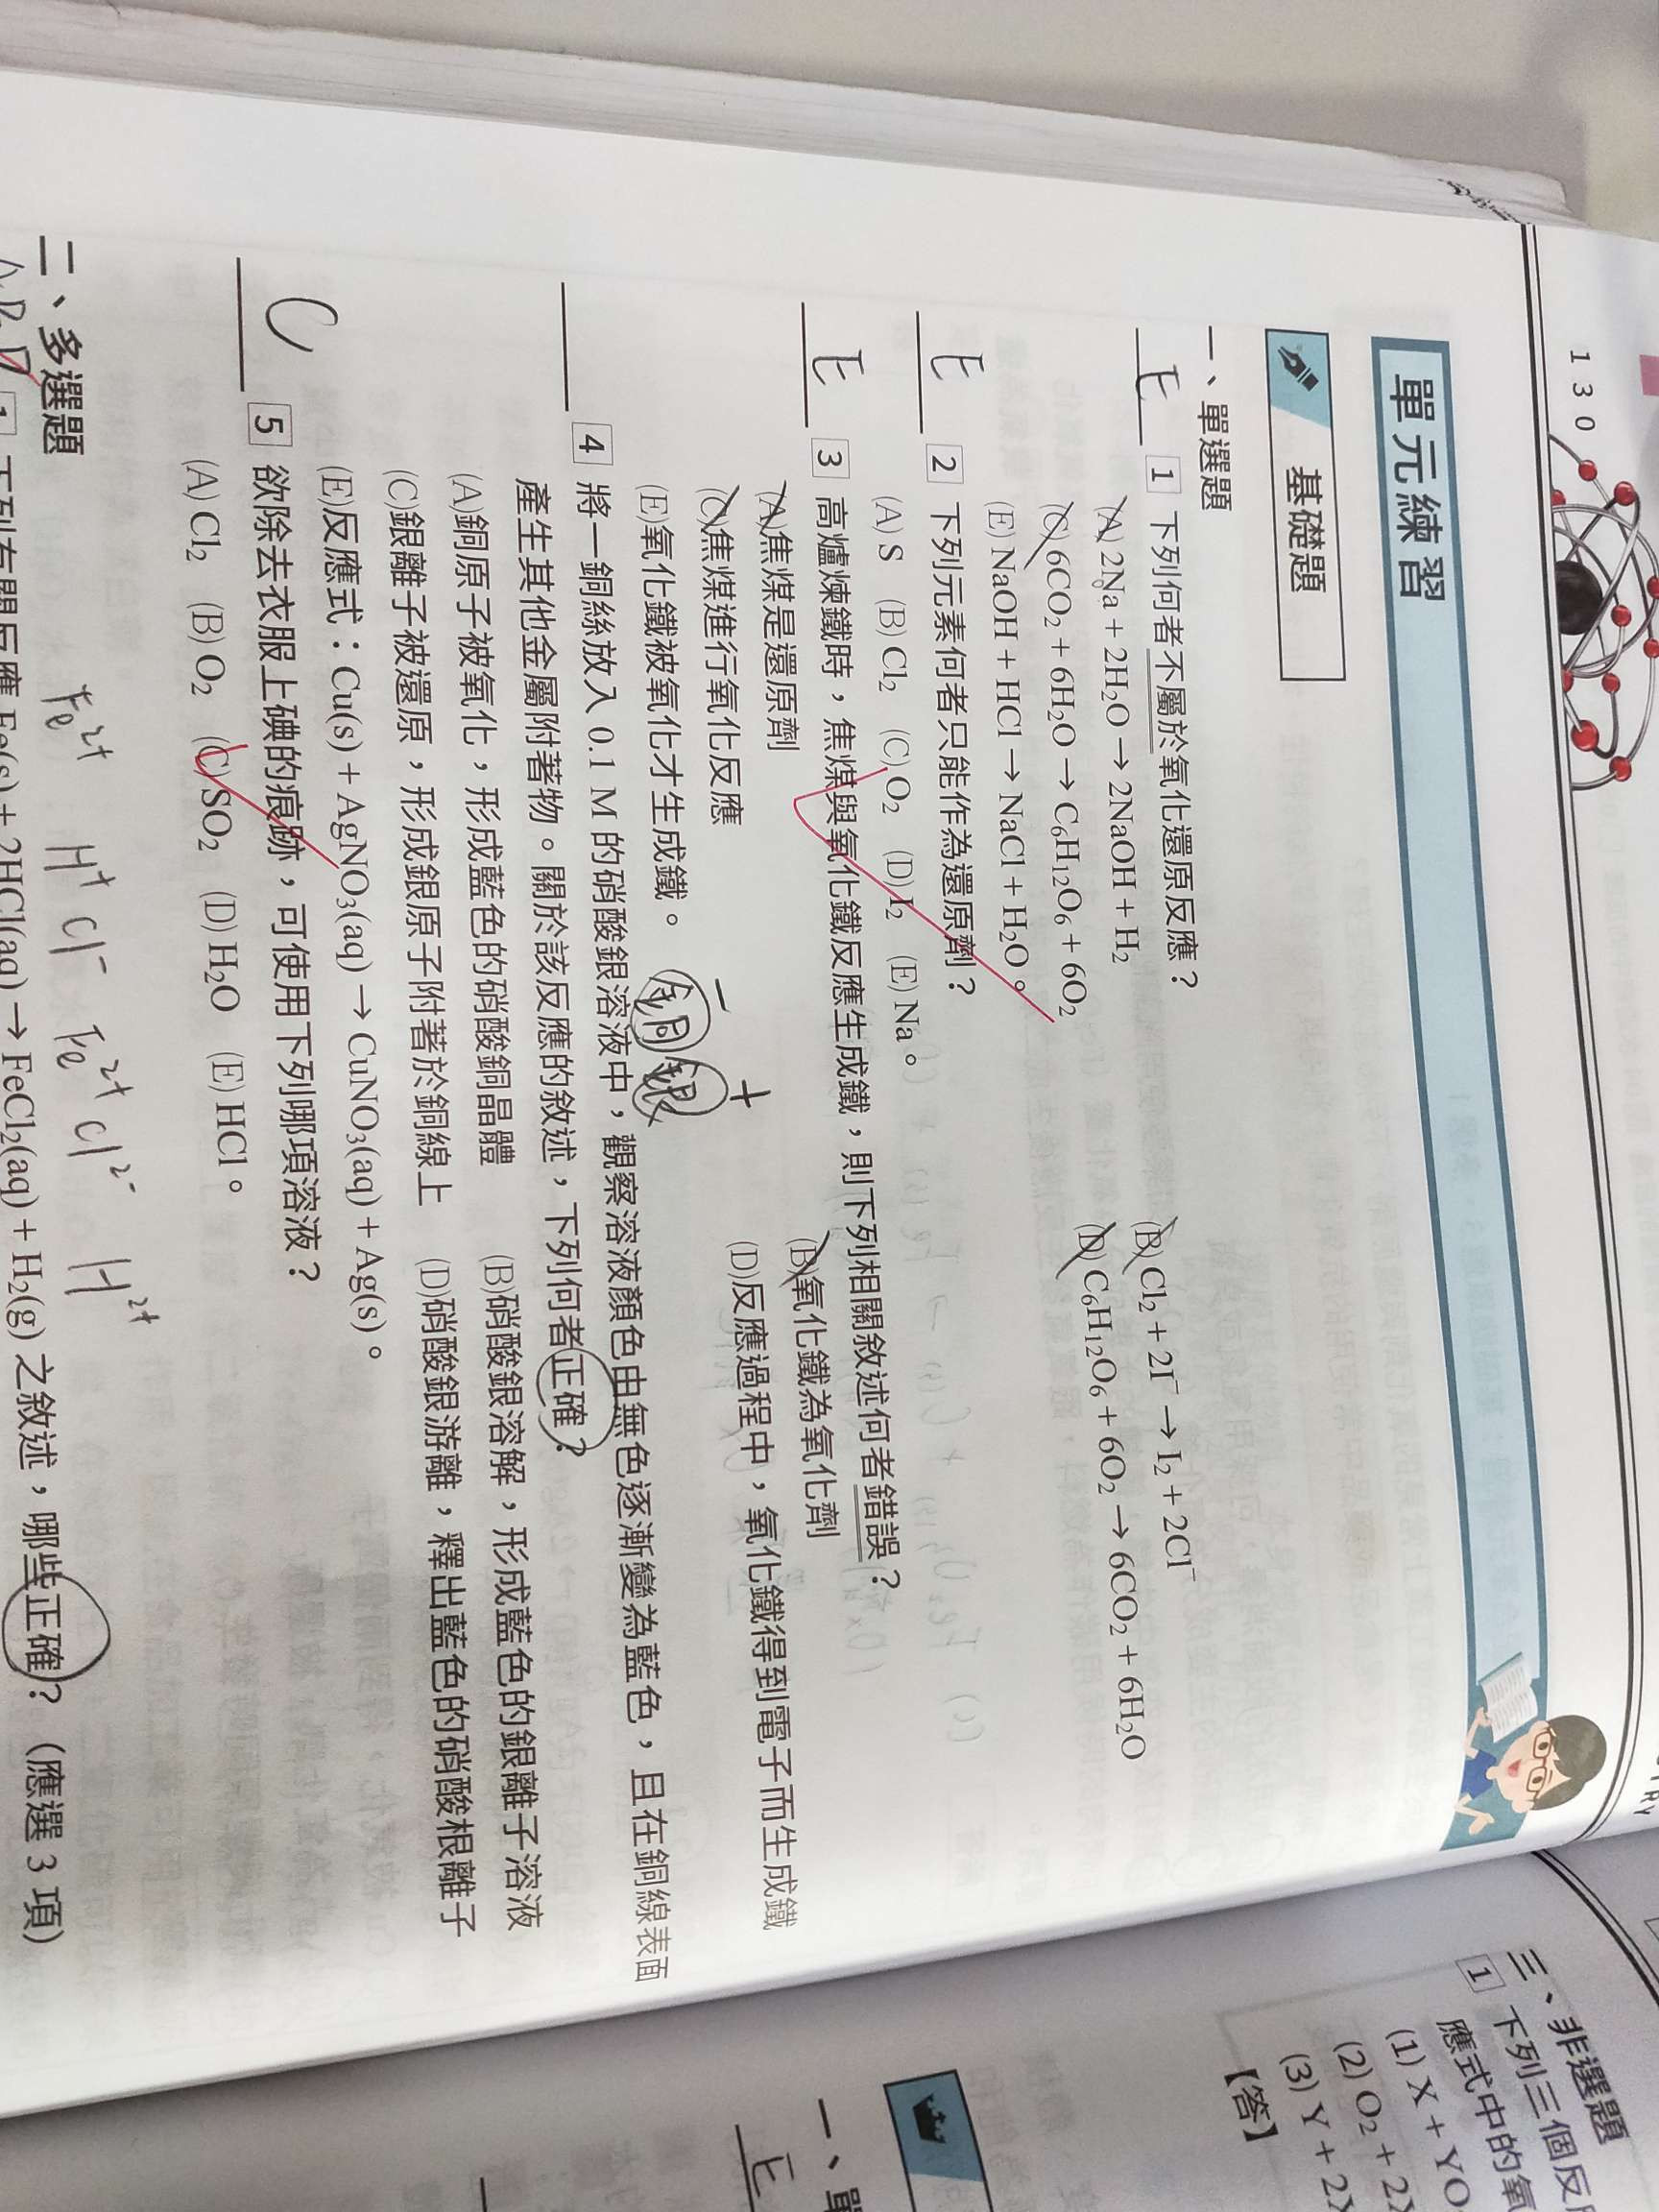 130
單元練習
基礎題
一、單選題
E 1 下列何者不屬於氧化還原反應？
(A) 2Na + 2H₂O → 2NaOH + H₂ (B) Cl₂ + 2I⁻ → I₂ + 2Cl⁻
(C) 6CO₂ + 6H₂O → C₆H₁₂O₆ + 6O₂ (D) C₆H₁₂O₆ + 6O₂ → 6CO₂ + 6H₂O
(E) NaOH + HCl → NaCl + H₂O。
E 2 下列元素何者只能作為還原劑？
(A) S (B) Cl₂ (C) O₂ (D) I₂ (E) Na。
E 3 高爐煉鐵時，焦煤與氧化鐵反應生成鐵，則下列相關敘述何者錯誤？
(A)焦煤是還原劑 (B)氧化鐵為氧化劑
(C)焦煤進行氧化反應 (D)反應過程中，氧化鐵得到電子而生成鐵
(E)氧化鐵被氧化才生成鐵。
− +
銅 銀
4 將一銅絲放入 0.1 M 的硝酸銀溶液中，觀察溶液顏色由無色逐漸變為藍色，且在銅線表面
產生其他金屬附著物。關於該反應的敘述，下列何者正確？
(A)銅原子被氧化，形成藍色的硝酸銅晶體 (B)硝酸銀溶解，形成藍色的銀離子溶液
(C)銀離子被還原，形成銀原子附著於銅線上 (D)硝酸銀游離，釋出藍色的硝酸根離子
(E)反應式：Cu(s) + AgNO₃(aq) → CuNO₃(aq) + Ag(s)。
C 5 欲除去衣服上碘的痕跡，可使用下列哪項溶液？
(A) Cl₂ (B) O₂ (C) SO₂ (D) H₂O (E) HCl。
二、多選題
Fe²⁺ H⁺ Cl⁻ Fe²⁺ Cl²⁻ H²⁺
1 下列有關反應 Fe(s) + 2HCl(aq) → FeCl₂(aq) + H₂(g) 之敘述，哪些正確？（應選 3 項）
三、非選題
1 下列三個反
應式中的氧
(1) X + YO
(2) O₂ + 2
(3) Y + 2
【答】
一、單
E